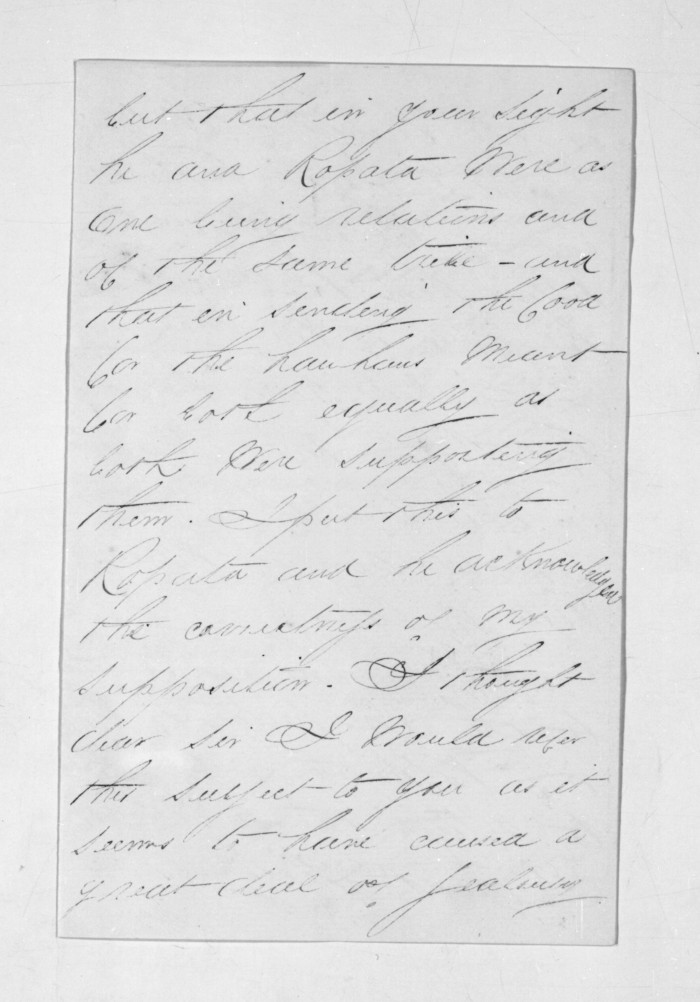 but that in your sight
he and Ropata Were as
One being relations and
of the same tribe - and
that in sending the food
for the hauhaus Meant
for both equally as
both Were supporting
them. I put this to
Ropata and he acknowledged
the correctness of my
supposition. I thought
dear Sir I Would refer
this subject to you as it
seems to have caused a
great deal of Jealousy